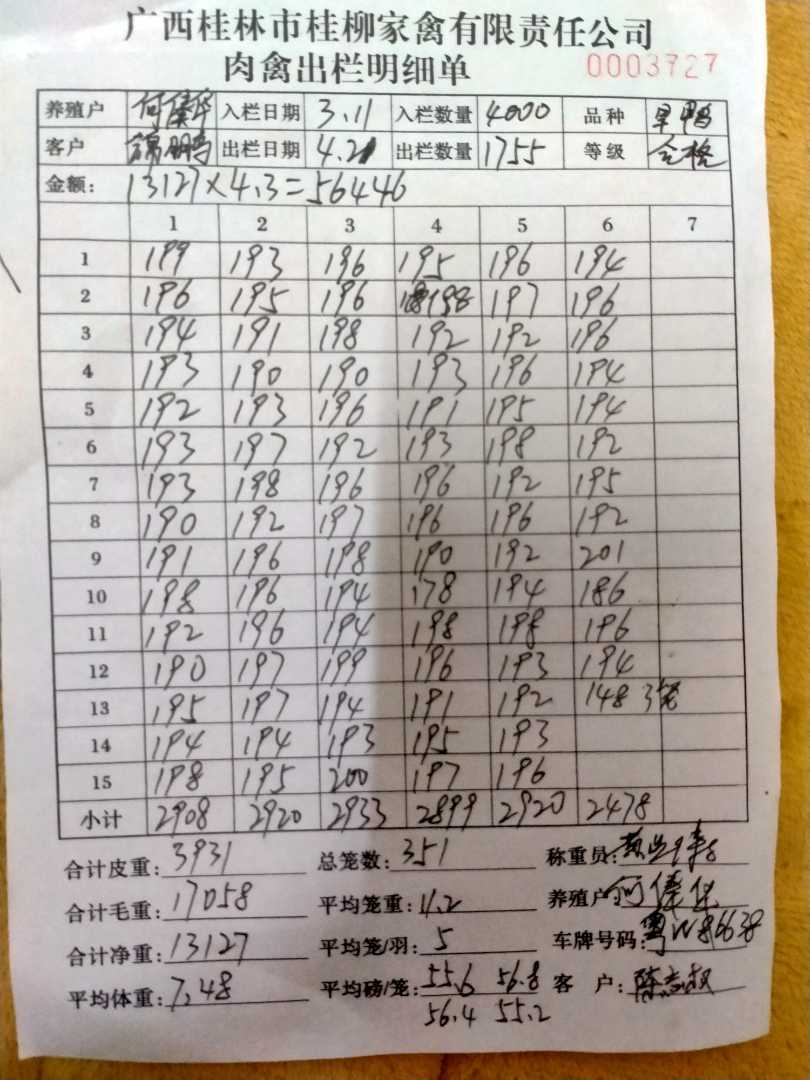 广西桂林市桂柳家禽有限责任公司
肉禽出栏明细单 0003727
养殖户 何 入栏日期 3.11 入栏数量 4000 品种 旱鸭
客户 锦鹏 出栏日期 4.21 出栏数量 1755 等级 合格
金额: 13127×4.3=56446
1 2 3 4 5 6 7
1 199 193 196 195 196 194
2 196 195 196 198 197 196
3 194 191 198 192 192 196
4 193 190 190 193 196 194
5 192 193 196 191 195 194
6 193 197 192 193 198 192
7 193 198 196 196 192 195
8 190 192 197 196 196 192
9 191 196 198 190 192 201
10 198 196 194 178 194 186
11 192 196 194 198 198 196
12 190 197 199 196 193 194
13 195 197 194 191 192 148 3笼
14 194 194 193 195 193
15 198 195 200 197 196
小计 2908 2920 2933 2899 2920 2478
合计皮重: 3931 总笼数: 351 称重员:
合计毛重: 17058 平均笼重: 11.2 养殖户 何
合计净重: 13127 平均笼/羽: 5 车牌号码: 粤W86638
平均体重: 7.48 平均磅/笼: 55.6 56.8 客 户: 陈志权
56.4 55.2